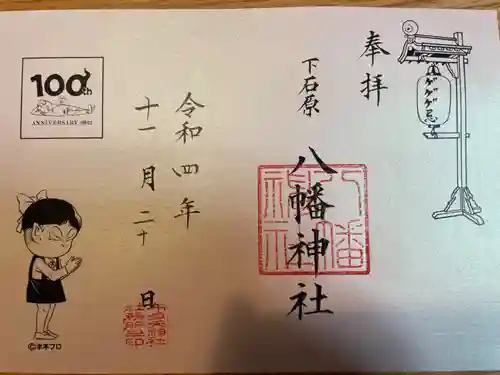 奉拝
ゲゲゲ忌
下石原
八幡神社
八幡神社
令和四年
十一月二十日
100th
ANNIVERSARY
©水木プロ